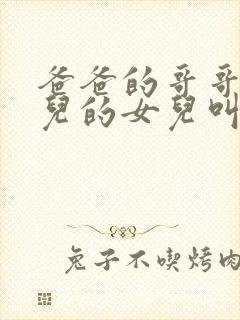 爸爸的哥哥
兒的女兒叫
兔子不喫烤肉